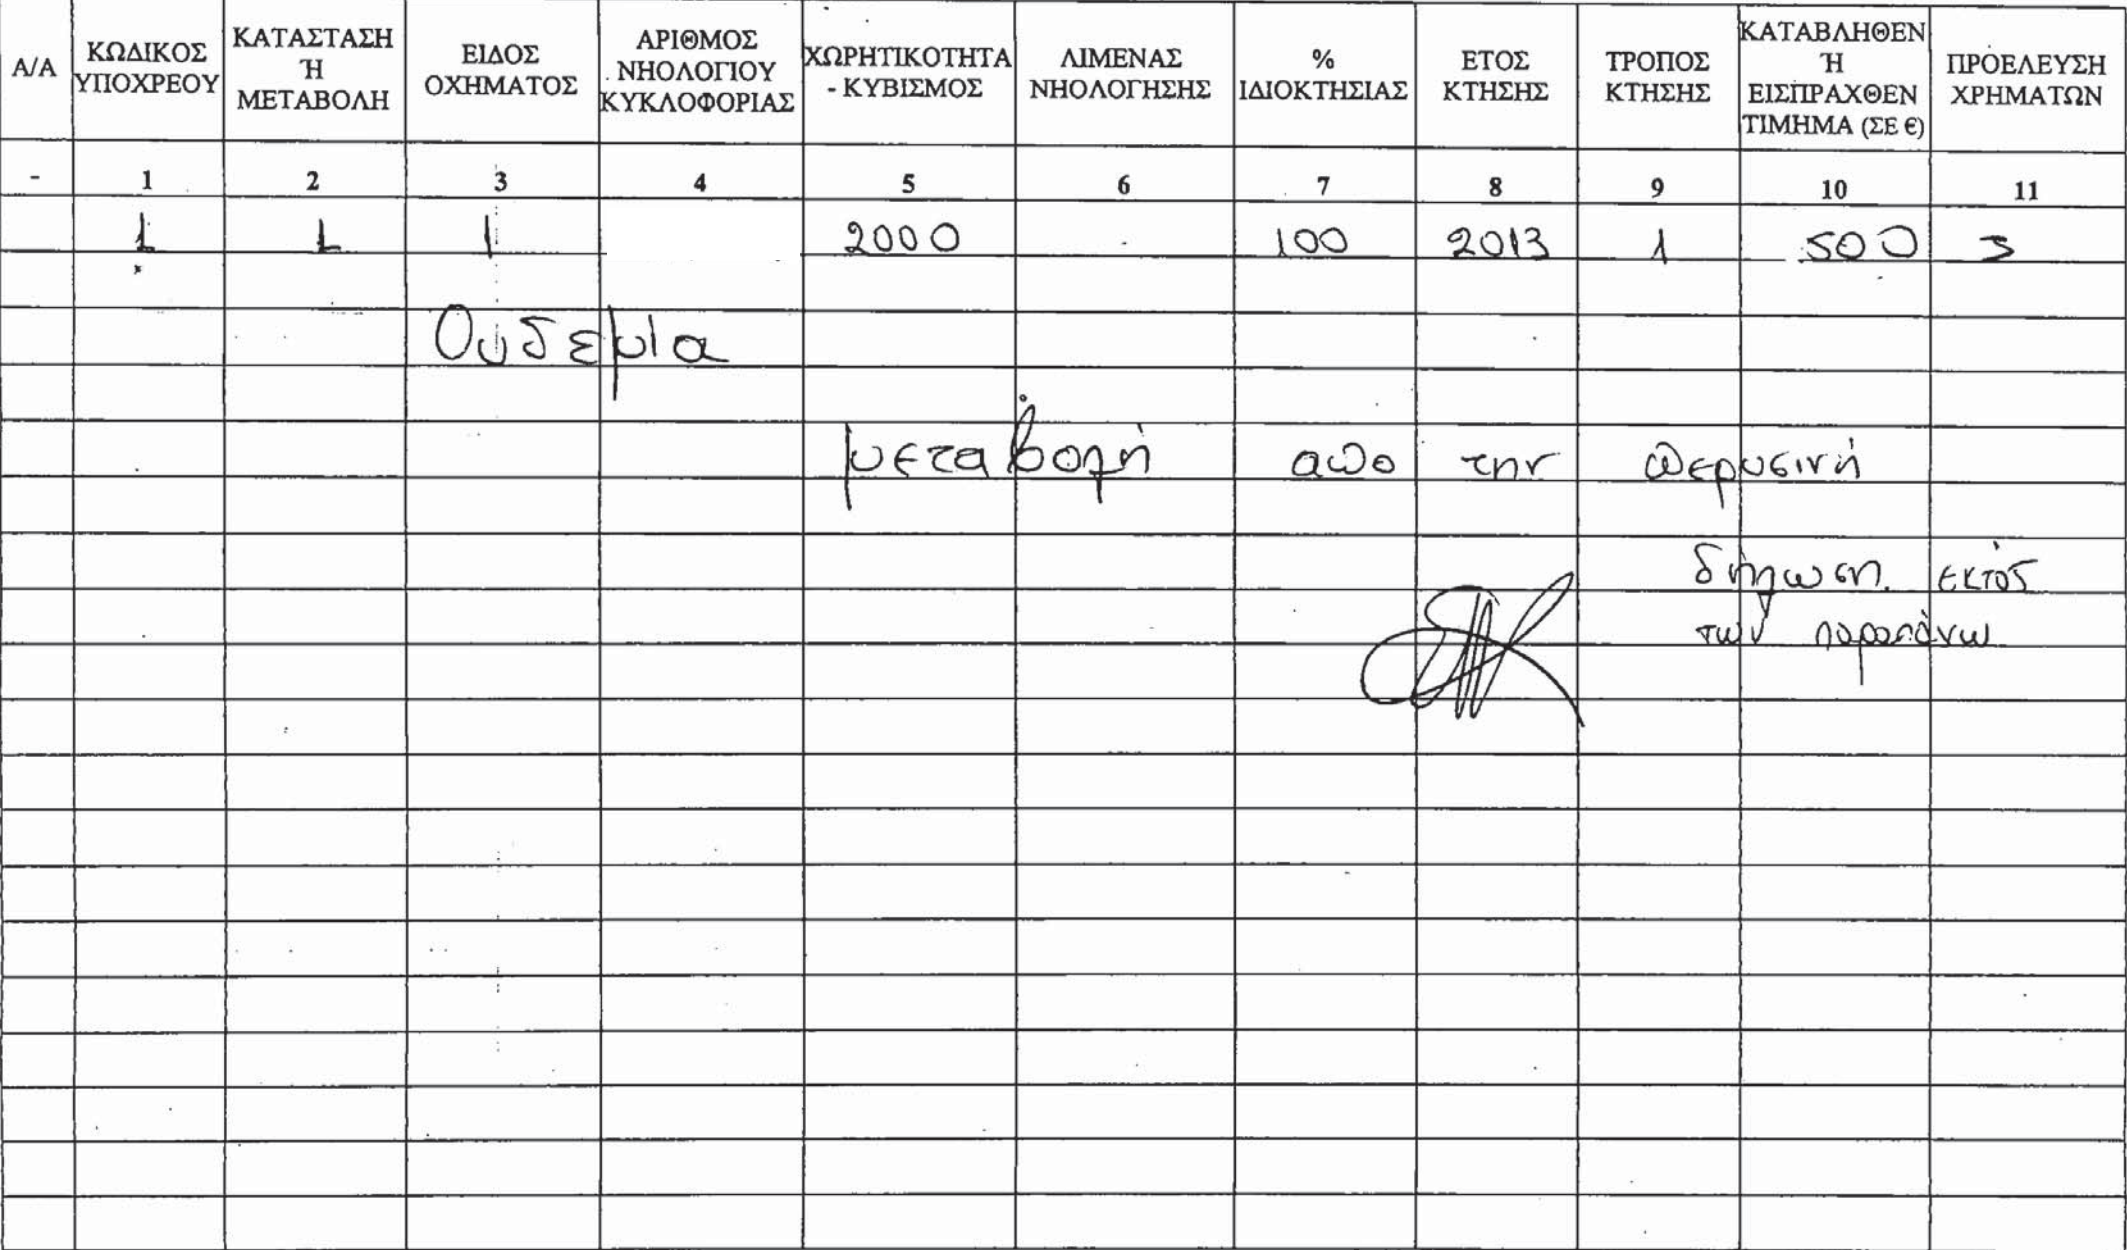 Α/Α ΚΩΔΙΚΟΣ ΥΠΟΧΡΕΟΥ ΚΑΤΑΣΤΑΣΗ Ή ΜΕΤΑΒΟΛΗ ΕΙΔΟΣ ΟΧΗΜΑΤΟΣ ΑΡΙΘΜΟΣ ΝΗΟΛΟΓΙΟΥ ΚΥΚΛΟΦΟΡΙΑΣ ΧΩΡΗΤΙΚΟΤΗΤΑ - ΚΥΒΙΣΜΟΣ ΛΙΜΕΝΑΣ ΝΗΟΛΟΓΗΣΗΣ % ΙΔΙΟΚΤΗΣΙΑΣ ΕΤΟΣ ΚΤΗΣΗΣ ΤΡΟΠΟΣ ΚΤΗΣΗΣ ΚΑΤΑΒΛΗΘΕΝ Ή ΕΙΣΠΡΑΧΘΕΝ ΤΙΜΗΜΑ (ΣΕ €) ΠΡΟΕΛΕΥΣΗ ΧΡΗΜΑΤΩΝ
- 1 2 3 4 5 6 7 8 9 10 11
1 1 1 2000 100 2013 1 500 3
Ουδεμία
μεταβολή απο την περυσινή
δήλωση. εκτός
των παραπάνω